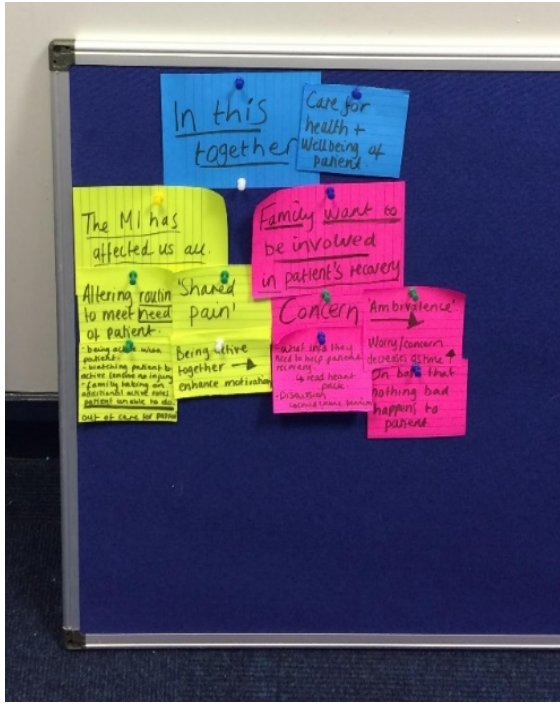 In this
together
Care for
health +
Wellbeing of
patient.
The MI has
affected us all.
Family want to
be involved
in patient's recovery
Altering routin
to meet need
of patient.
- being active when
patient
- watching patient b
active (ensure no injury
- family taking on
additional active roles
patient unable to do.
out of care for
'Shared
pain'
Being active
together →
enhance motivation
Concern
- what info they
need to help patient
recovery.
↳ read heart
pack
- Discussion
'Ambivalence'
Worry/concern
decreases as time ↑
On bas that
nothing bad
happens to
patient